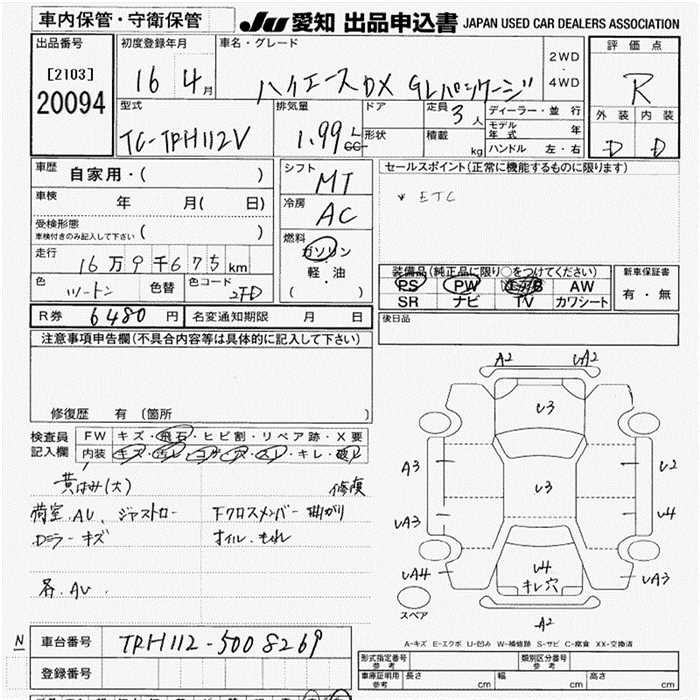 車内保管・守衛保管
JU 愛知 出品申込書 JAPAN USED CAR DEALERS ASSOCIATION
出品番号
[2103]
20094
初度登録年月
16 4月
車名・グレード
ハイエース DX GLパッケージ
2WD
・
4WD
評価点
R
外装 内装
D D
型式
TC-TRH112V
排気量
1.99 L
cc
ドア
形状
定員 3人
積載 kg
ディーラー・並行
モデル年式 年
ハンドル 左・右
車歴
自家用・( )
車検 年 月( 日)
受検形態
車検付きのみ記入して下さい ( )
走行
16万9千675km
色 ツートン 色替 色コード 2FD
シフト MT
冷房 AC
燃料
ガソリン
軽・油
( )
セールスポイント(正常に機能するものに限ります)
* ETC
装備品(純正品に限り○をつけてください)
PS PW AW
SR ナビ TV カワシート
新車保証書
有・無
R券 6480円 名変通知期限 月 日
後日品
注意事項申告欄(不具合内容等は具体的に記入して下さい)
修復歴 有 (箇所 )
検査員
記入欄
FW キズ・飛石・ヒビ割・リペア跡・X要
内装 キズ・汚レ・コゲ・穴・スレ・キレ・破レ
黄ばみ(大) 修復
荷室.AU、ジャストロー 下クロスメンバー 曲がり
Dミラーキズ オイル.もれ
各.AU
A2 UA2
U3
A3 U2
U3
UA3 U4
U4
キレ穴
UA4 UA3
A2
スペア
A-キズ E-エクボ U-凹み W-補修跡 S-サビ C-腐食 XX-交換済
N
車台番号 TRH112-5008269
登録番号
形式指定番号
参考
類別区分番号
参考
車庫証明用
参考
長さ cm 幅 cm 高さ cm